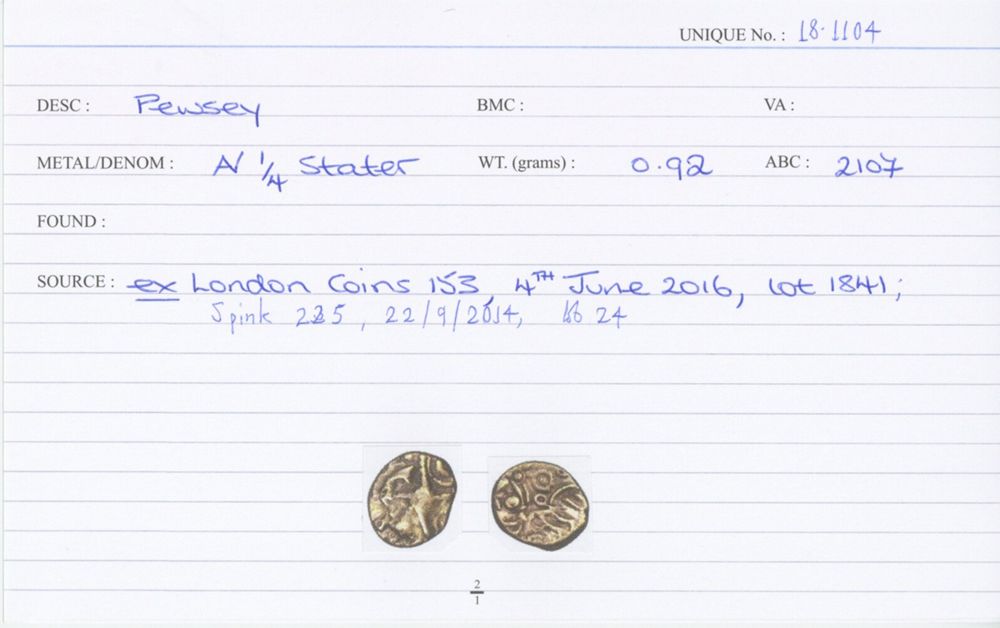 UNIQUE No. : 18.1104
DESC : Pewsey BMC : VA :
METAL/DENOM : N 1/4 Stater WT. (grams) : 0.92 ABC : 2107
FOUND :
SOURCE : ex London Coins 153, 4TH June 2016, lot 1841;
Spink 225, 22/9/2014, lot 24
2
1